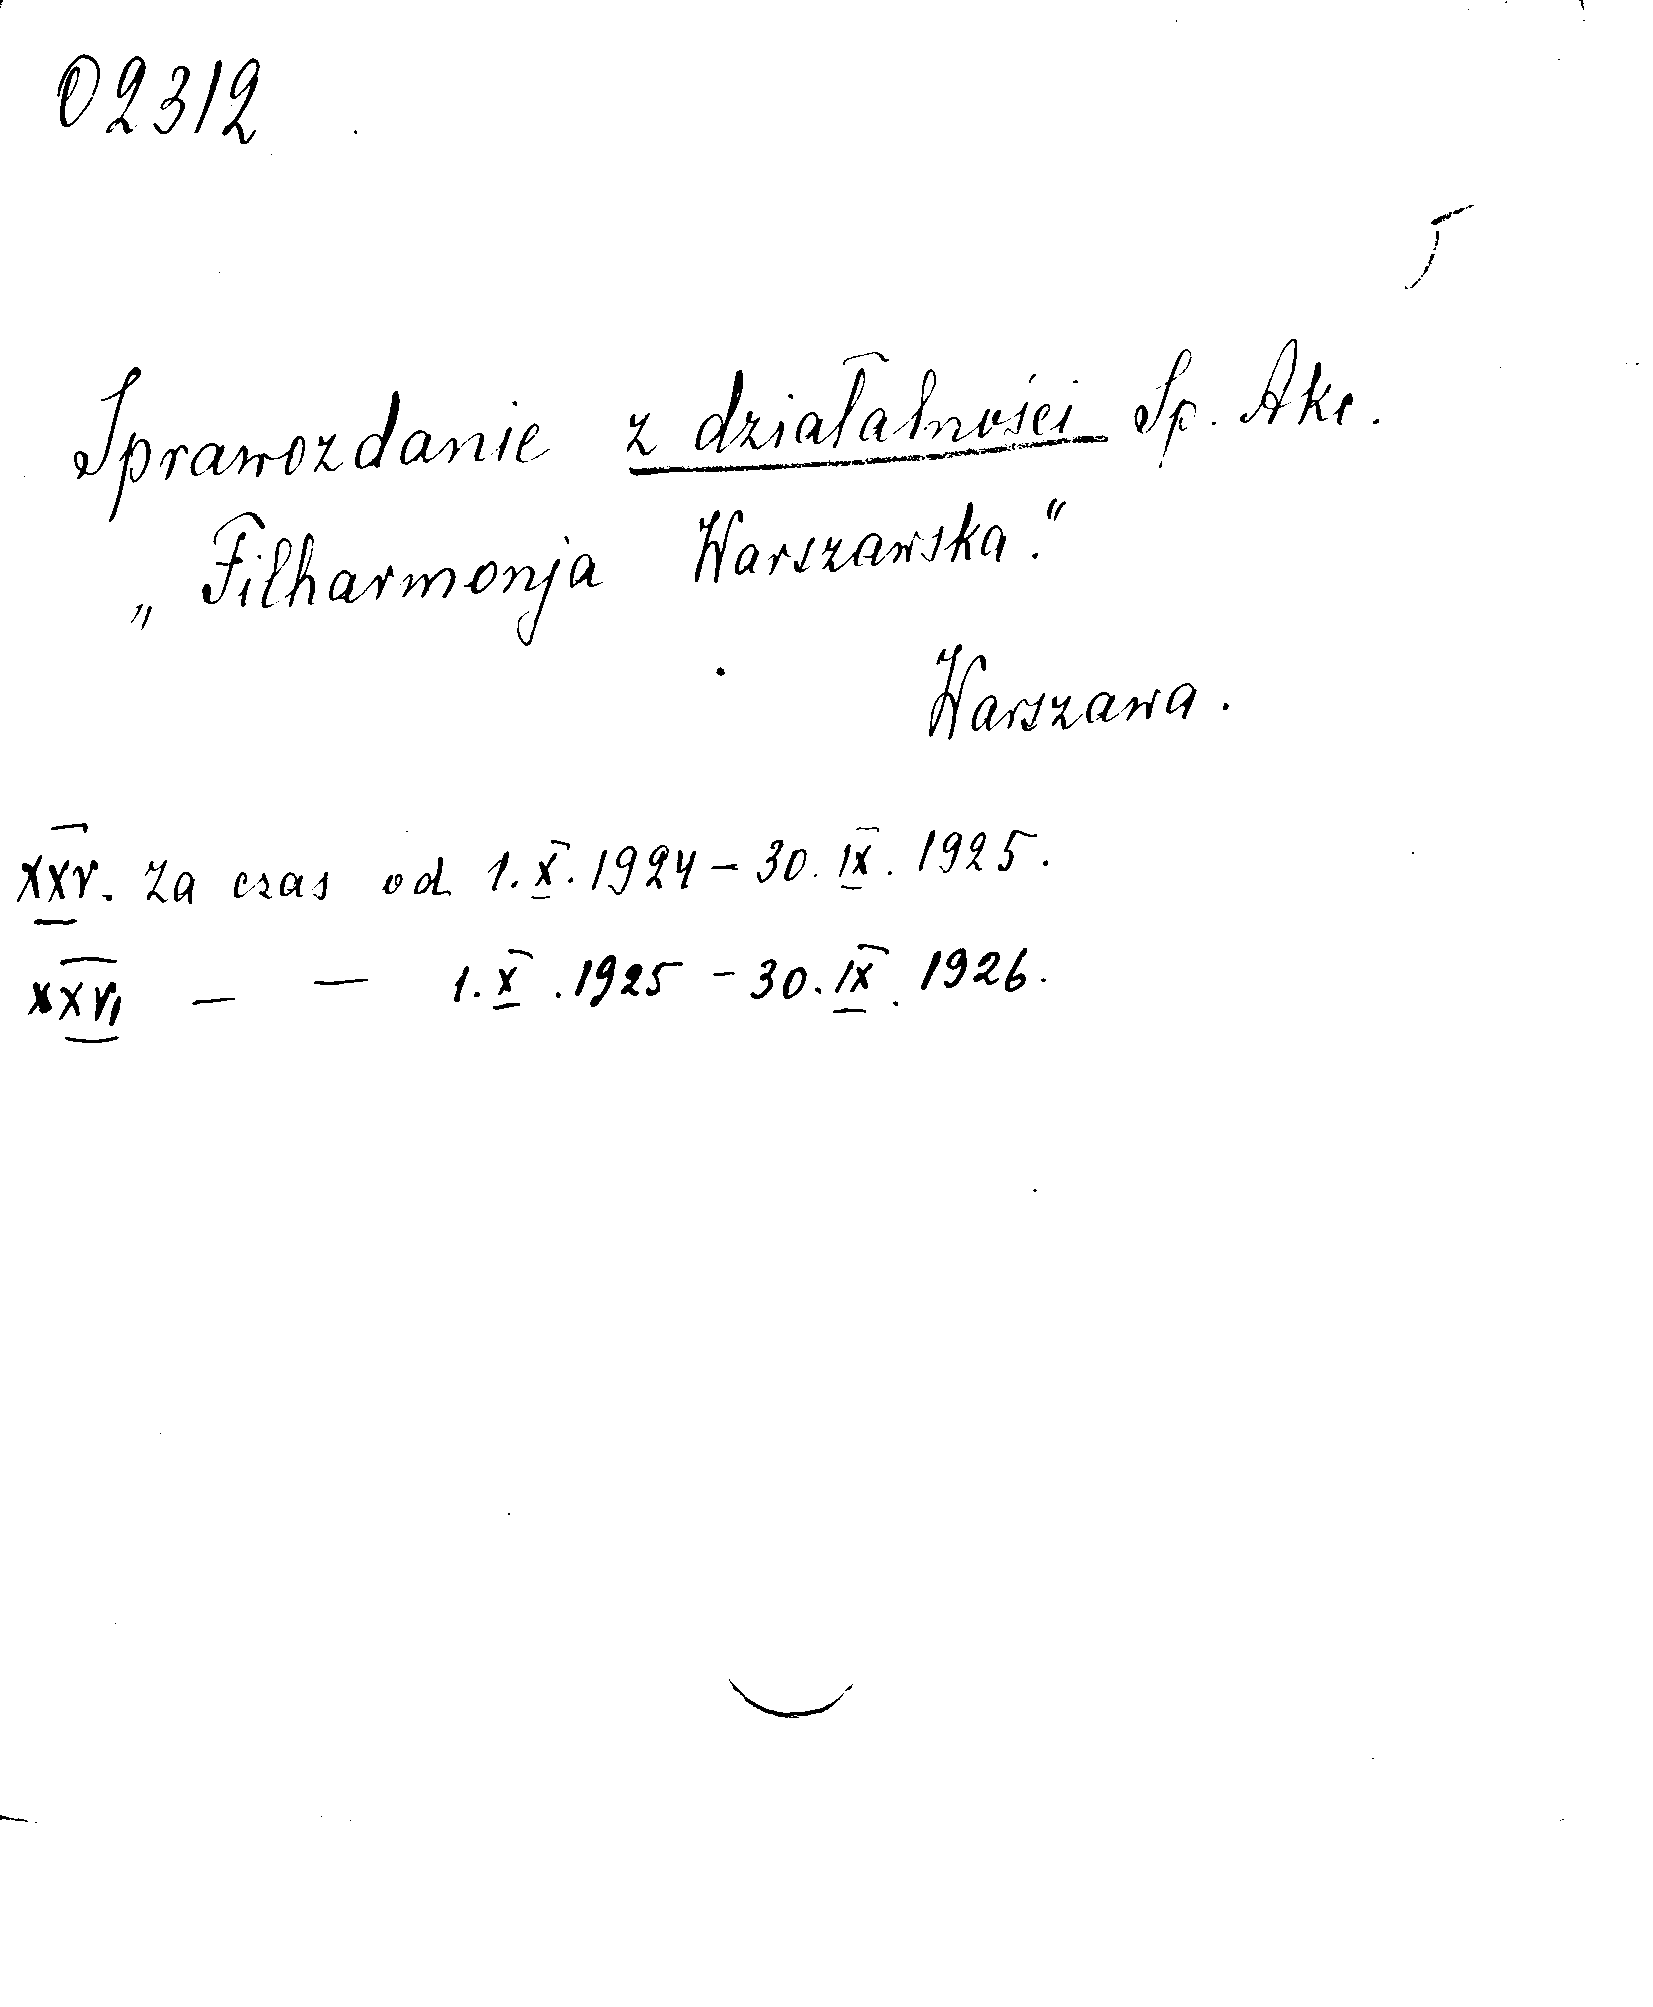 02312
Sprawozdanie z działalności Sp. Akc.
„Filharmonja Warszawska."
Warszawa.
XXV. Za czas od 1.X.1924 – 30.IX.1925.
XXVI — — 1.X.1925 – 30.IX.1926.